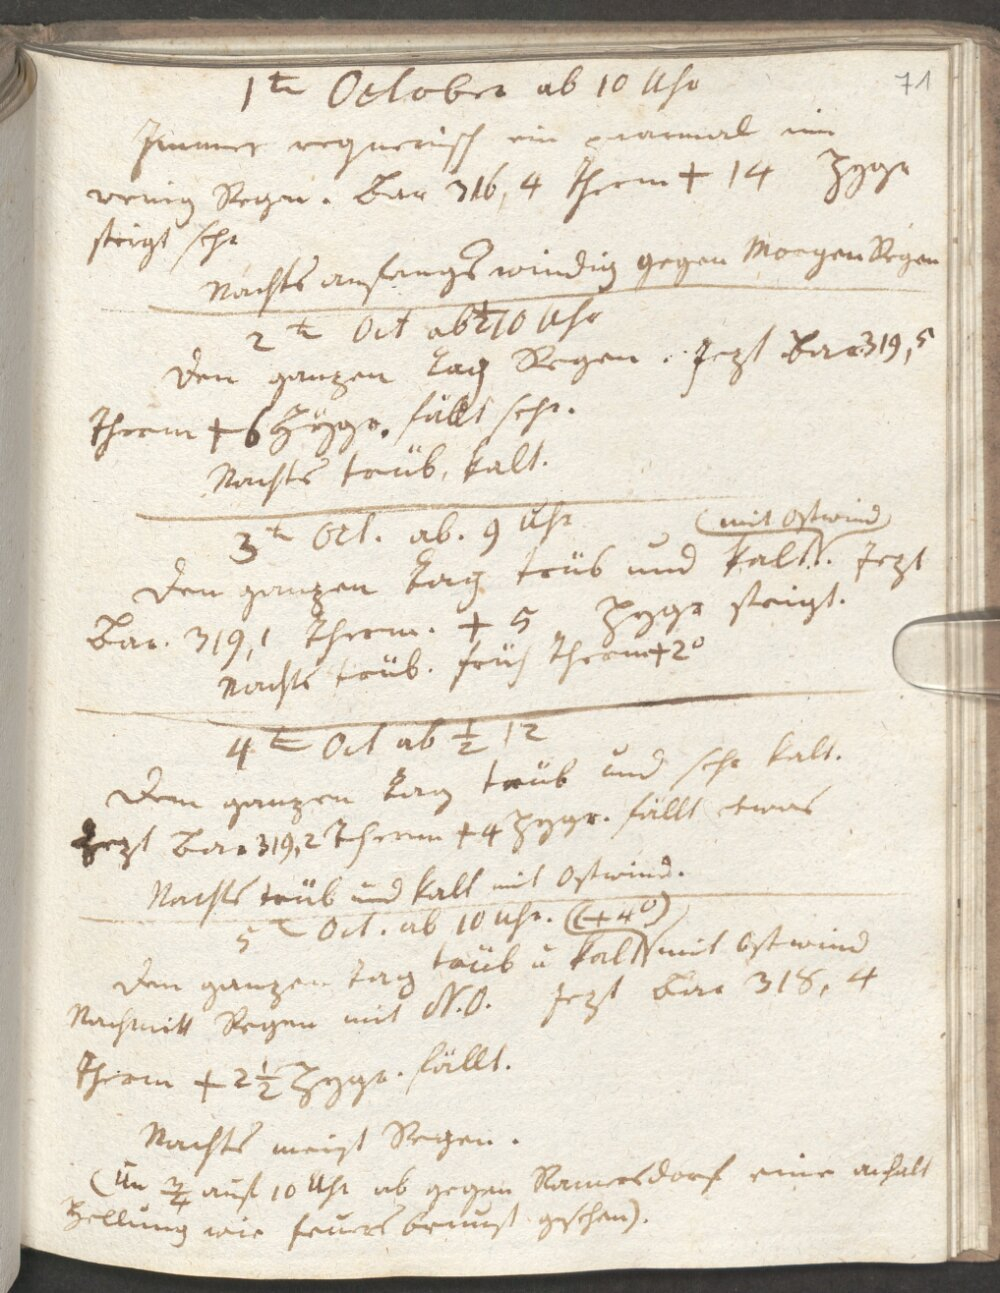 71
1te October ab 10 Uhr
Immer regnerisch ein paarmal ein
wenig Regen. Bar 316,4 Therm + 14 Hygr
steigt sehr
Nachts anfangs windig gegen Morgen Regen
2te Oct ab ½10 Uhr
Den ganzen Tag Regen. Jezt Bar 319,5
Therm + 6 Hygr. fällt sehr.
Nachts trüb, kalt.
3te Oct. ab. 9 Uhr
(mit Ostwind)
Den ganzen Tag trüb und kalt. Jezt
Bar. 319,1 Therm. + 5 Hygr steigt.
Nachts trüb. früh Therm + 2°
4te Oct ab ½ 12
Den ganzen Tag trüb und sehr kalt.
Jezt Bar 319,2 Therm + 4 Hygr. fällt etwas
Nachts trüb und kalt mit Ostwind.
5te Oct. ab 10 Uhr. (+ 4°)
Den ganzen Tag trüb u kalt mit Ostwind
Nachmitt Regen mit N.O. Jezt Bar 318,4
Therm + 2½ Hygr. fällt.
Nachts meist Regen.
(Um ¾ auf 10 Uhr ab gegen Ramersdorf eine
Hellung wie Feuersbrunst gesehen).